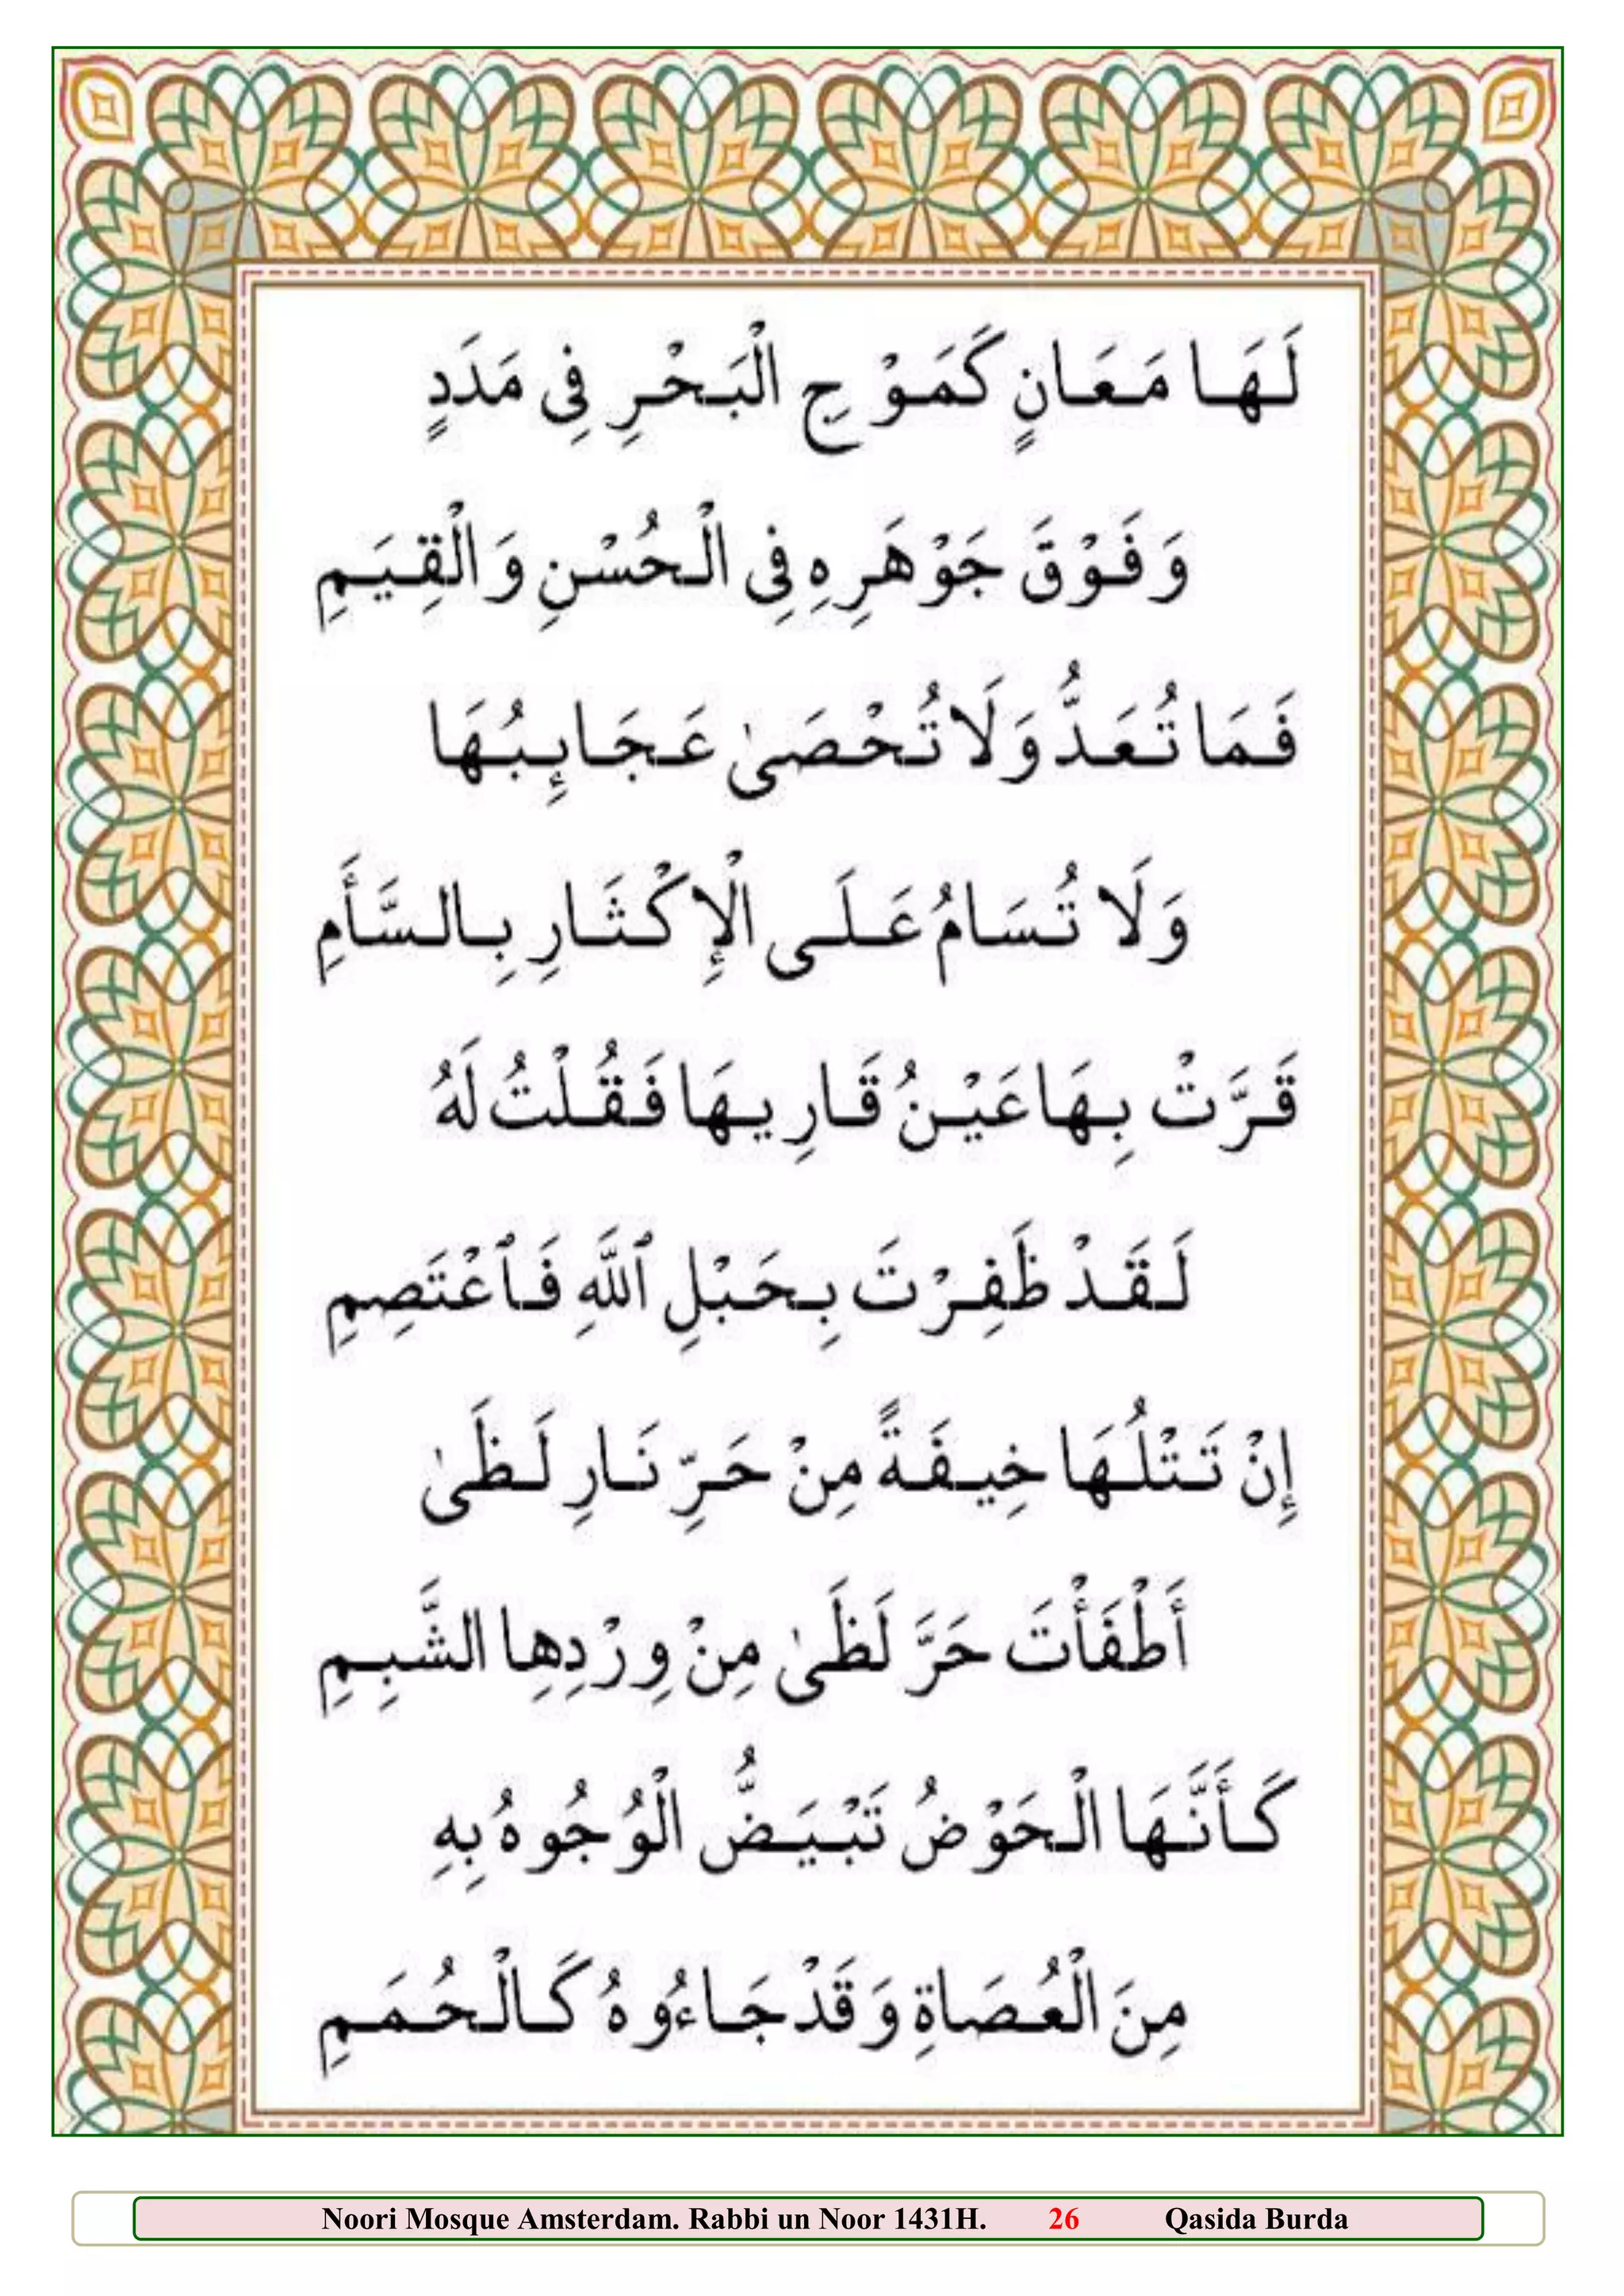 لَهَا مَعَانٍ كَمَوْجِ الْبَحْرِ فِى مَدَدٍ
وَفَوْقَ جَوْهَرِهِ فِى الْحُسْنِ وَالْقِيَمِ
فَمَا تُعَدُّ وَلَا تُحْصَىٰ عَجَائِبُهَا
وَلَا تُسَامُ عَلَى الْإِكْثَارِ بِالسَّأَمِ
قَرَّتْ بِهَا عَيْنُ قَارِيهَا فَقُلْتُ لَهُ
لَقَدْ ظَفِرْتَ بِحَبْلِ ٱللَّهِ فَٱعْتَصِمِ
إِنْ تَتْلُهَا خِيفَةً مِنْ حَرِّ نَارِ لَظَىٰ
أَطْفَأْتَ حَرَّ لَظَىٰ مِنْ وِرْدِهِا الشَّبِمِ
كَأَنَّهَا الْحَوْضُ تَبْيَضُّ الْوُجُوهُ بِهِ
مِنَ الْعُصَاةِ وَقَدْ جَاءُوهُ كَالْحُمَمِ
Noori Mosque Amsterdam. Rabbi un Noor 1431H. 26 Qasida Burda